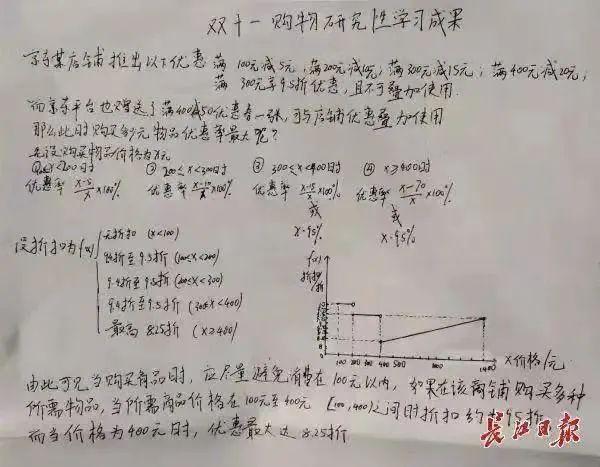 双十一购物研究性学习成果
京东某店铺推出以下优惠 满100元减5元，满200元减10元，满300元减15元；满400元减20元，
满300元享9.5折优惠，且不可叠加使用.
而京东平台也赠送了满400减50优惠券一张，可与店铺优惠叠加使用
那么此时购买多少元物品优惠率最大呢？
先设购买物品价格为x元
x<200时 ② 200≤x<300时 ③ 300≤x<400时 ④ x≥400时
优惠率 x-5/x ×100% 优惠率 x-10/x ×100% 优惠率 x-15/x ×100% 优惠率 x-70/x ×100%
或 或
x·95% x·95%
设折扣为f(x)
无折扣 (x<100)
9.5折 (100≤x<200)
9.5折 (200≤x<300)
9.5折 (300≤x<400)
最高 8.25折 (x≥400)
f(x)
折扣/折
100 200 300 400 500 1400 x价格/元
由此可见当购买商品时，应尽量避免消费在100元以内，如果在该商铺购买多种
所需物品，当所需商品价格在100元至400元 [100,400)之间时折扣约为9.5折
而当价格为400元时，优惠最大达8.25折
长江日报